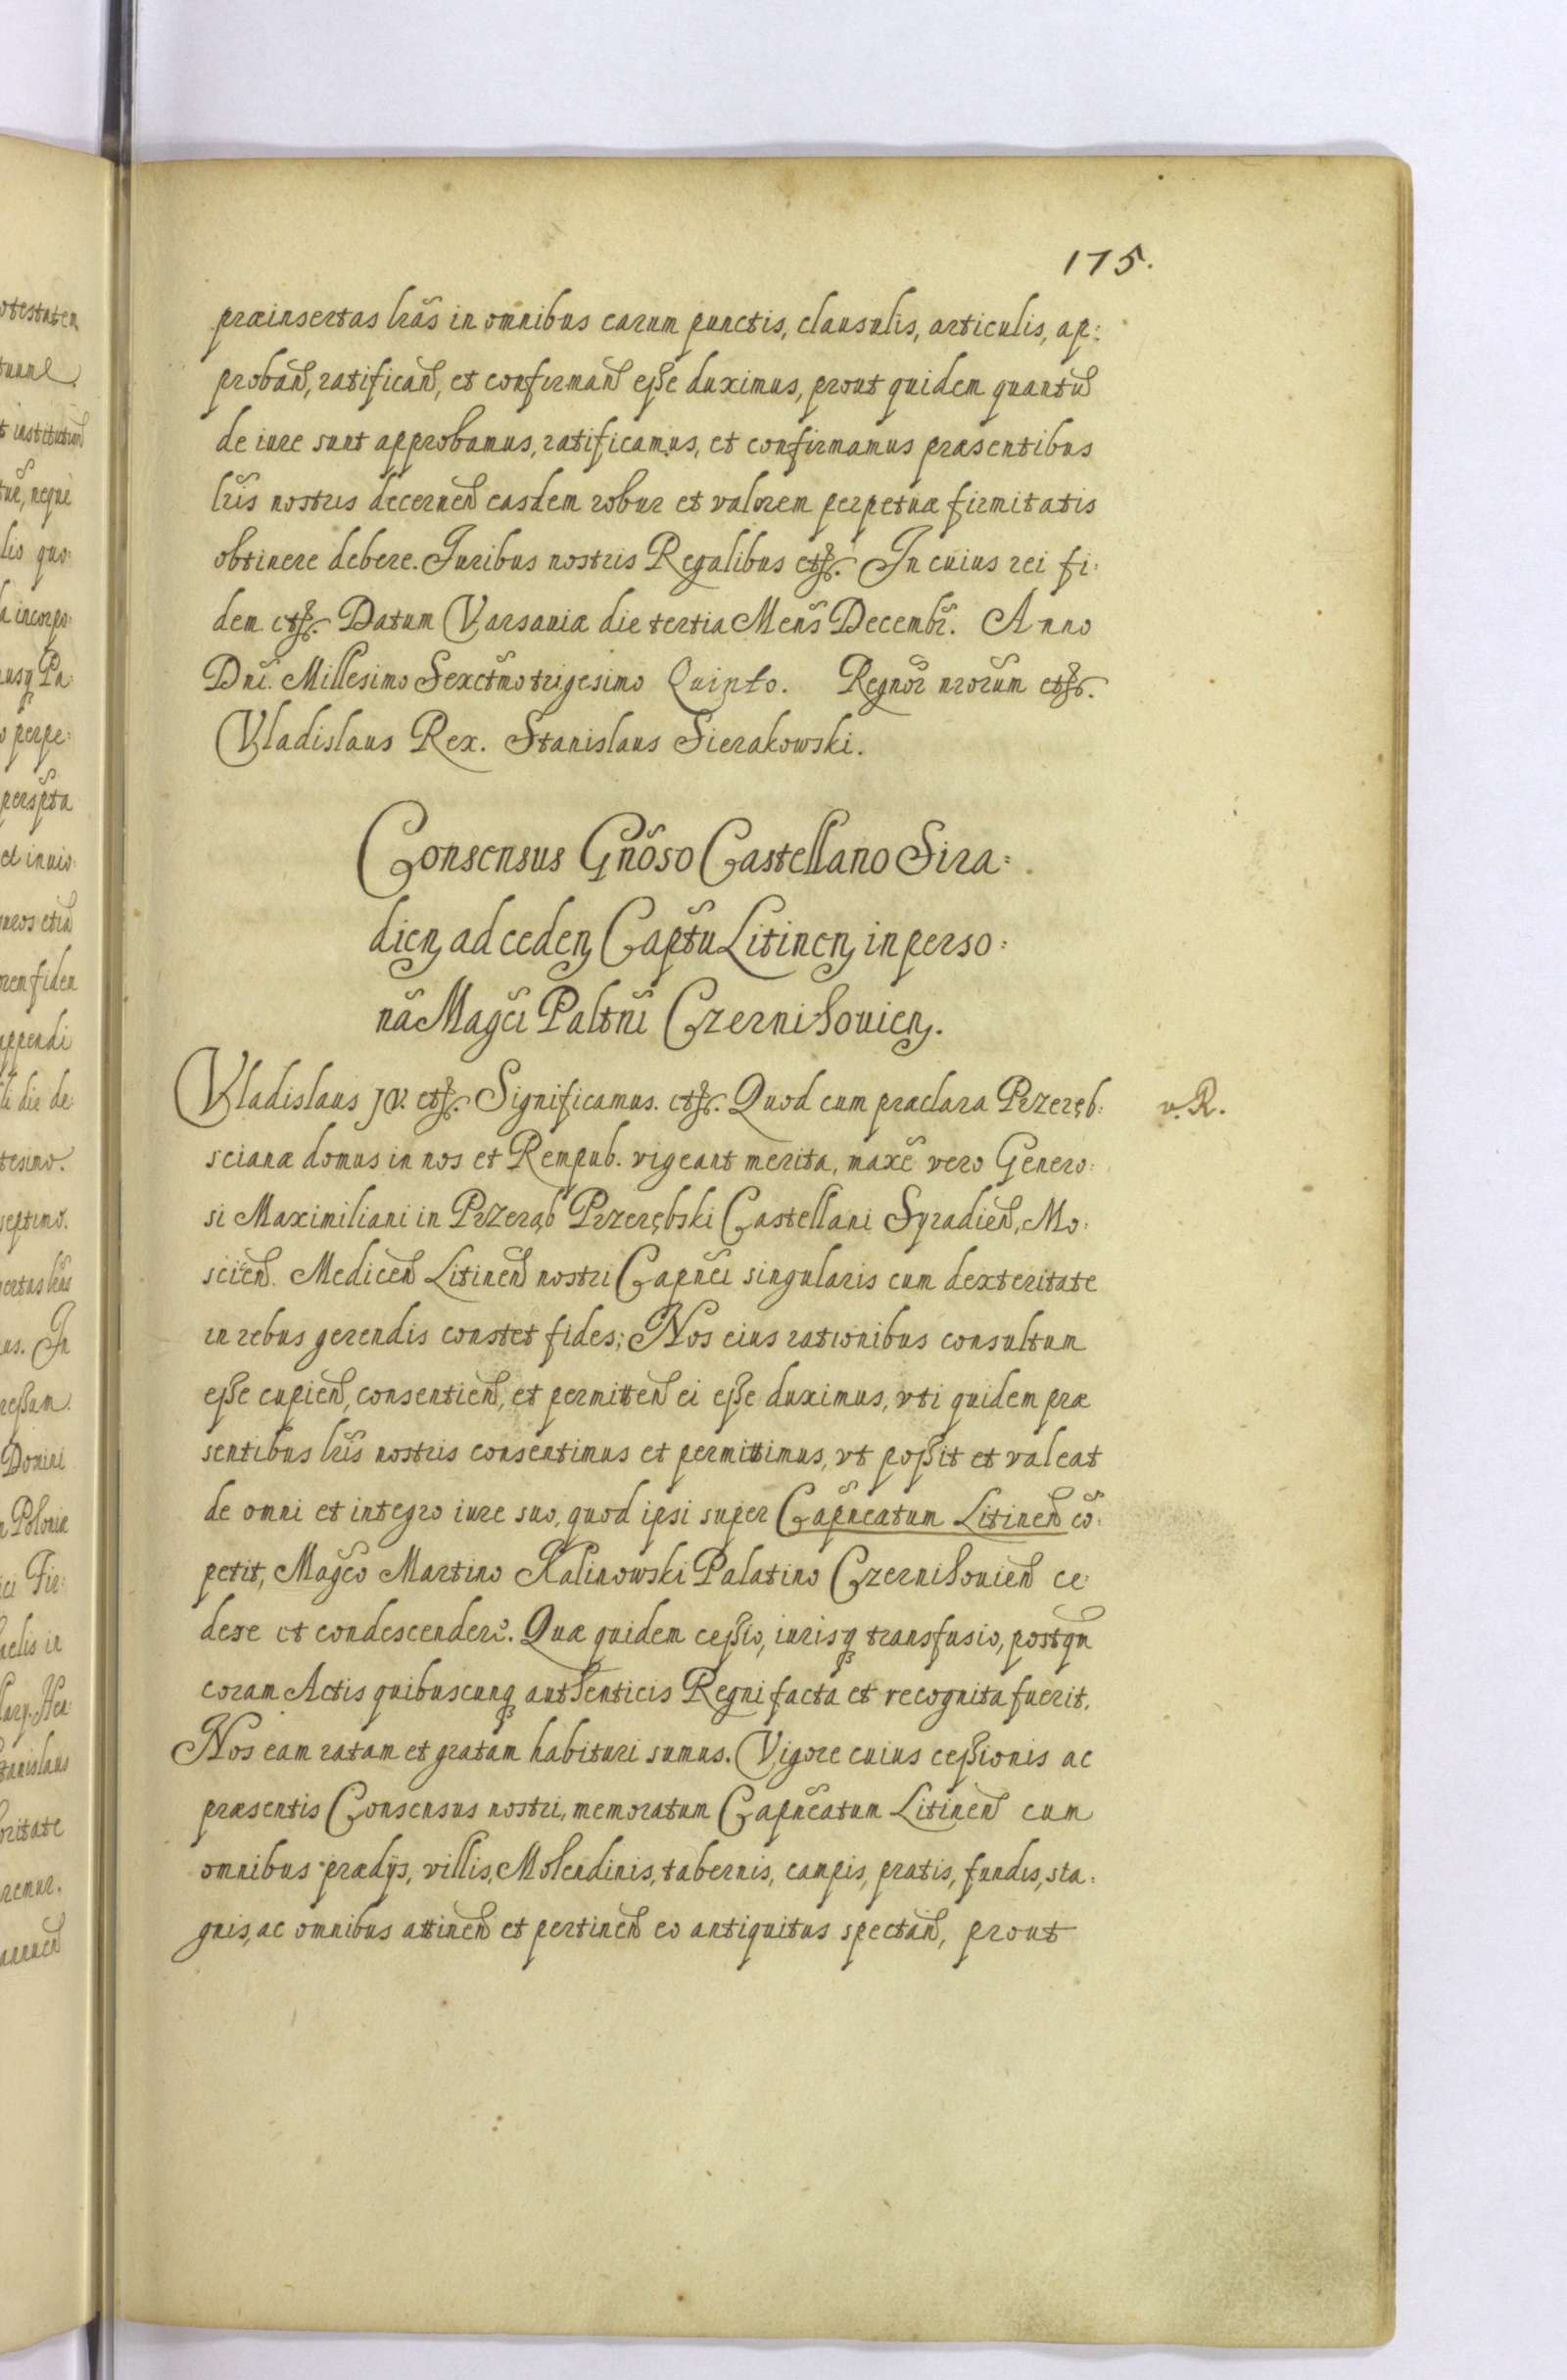 175.
præinsertas lrãs in omnibus earum punctis, clausulis, articulis, ap:
proban̄, ratifican̄, et confirman̄ eße duximus, prout quidem quantũ
de iure sunt approbamus, ratificamus, et confirmamus præsentibus
lrĩs nostris decernen̄ easdem robur et valorem perpetuæ firmitatis
obtinere debere. Juribus nostris Regalibus etc. In cuius rei fi:
dem etc. Datum Varsaviæ die tertia Mens̃ Decembr̃. Anno
Dnĩ. Millesimo Sexctm̃o trigesimo Quinto. Regnor̃ nrorũm etc.
Vladislaus Rex. Stanislaus Sierakowski.
Consensus Gnõso Castellano Sira:
dien̄ ad ceden̄ Captũ Litinen̄ in perso:
nã Magcĩ Paltnĩ Czernihovien̄.
Vladislaus IV. etc. Significamus. etc. Quod cum præclara Przeręb:
v. R.
scianæ domus in nos et Rempub. vigeant merita, maxẽ vero Genero:
si Maximiliani in Przerąb Przerębski Castellani Syradien̄, Mo:
scien̄. Medicen̄ Litinen̄ nostri Capñei singularis cum dexteritate
in rebus gerendis constet fides; Nos eius rationibus consultum
eße cupien̄, consentien̄, et permitten̄ ei eße duximus, vti quidem præ
sentibus lrĩs nostris consentimus et permittimus, vt poßit et valeat
de omni et integro iure suo, quod ipsi super Capñeatum Litinen̄ cõ:
petit, Magc̃o Martino Kalinowski Palatino Czernihovien̄ ce:
dere et condescendere. Quæ quidem ceßio, iurisq transfusio, postqm̃
coram Actis quibuscunq authenticis Regni facta et recognita fuerit.
Nos eam ratam et gratam habituri sumus. Vigore cuius ceßionis ac
præsentis Consensus nostri, memoratum Capñeatum Litinen̄ cum
omnibus prædijs, villis, Molendinis, tabernis, campis, pratis, fundis, sta:
gnis, ac omnibus attinen̄ et pertinen̄ eo antiquitus spectan̄, prout